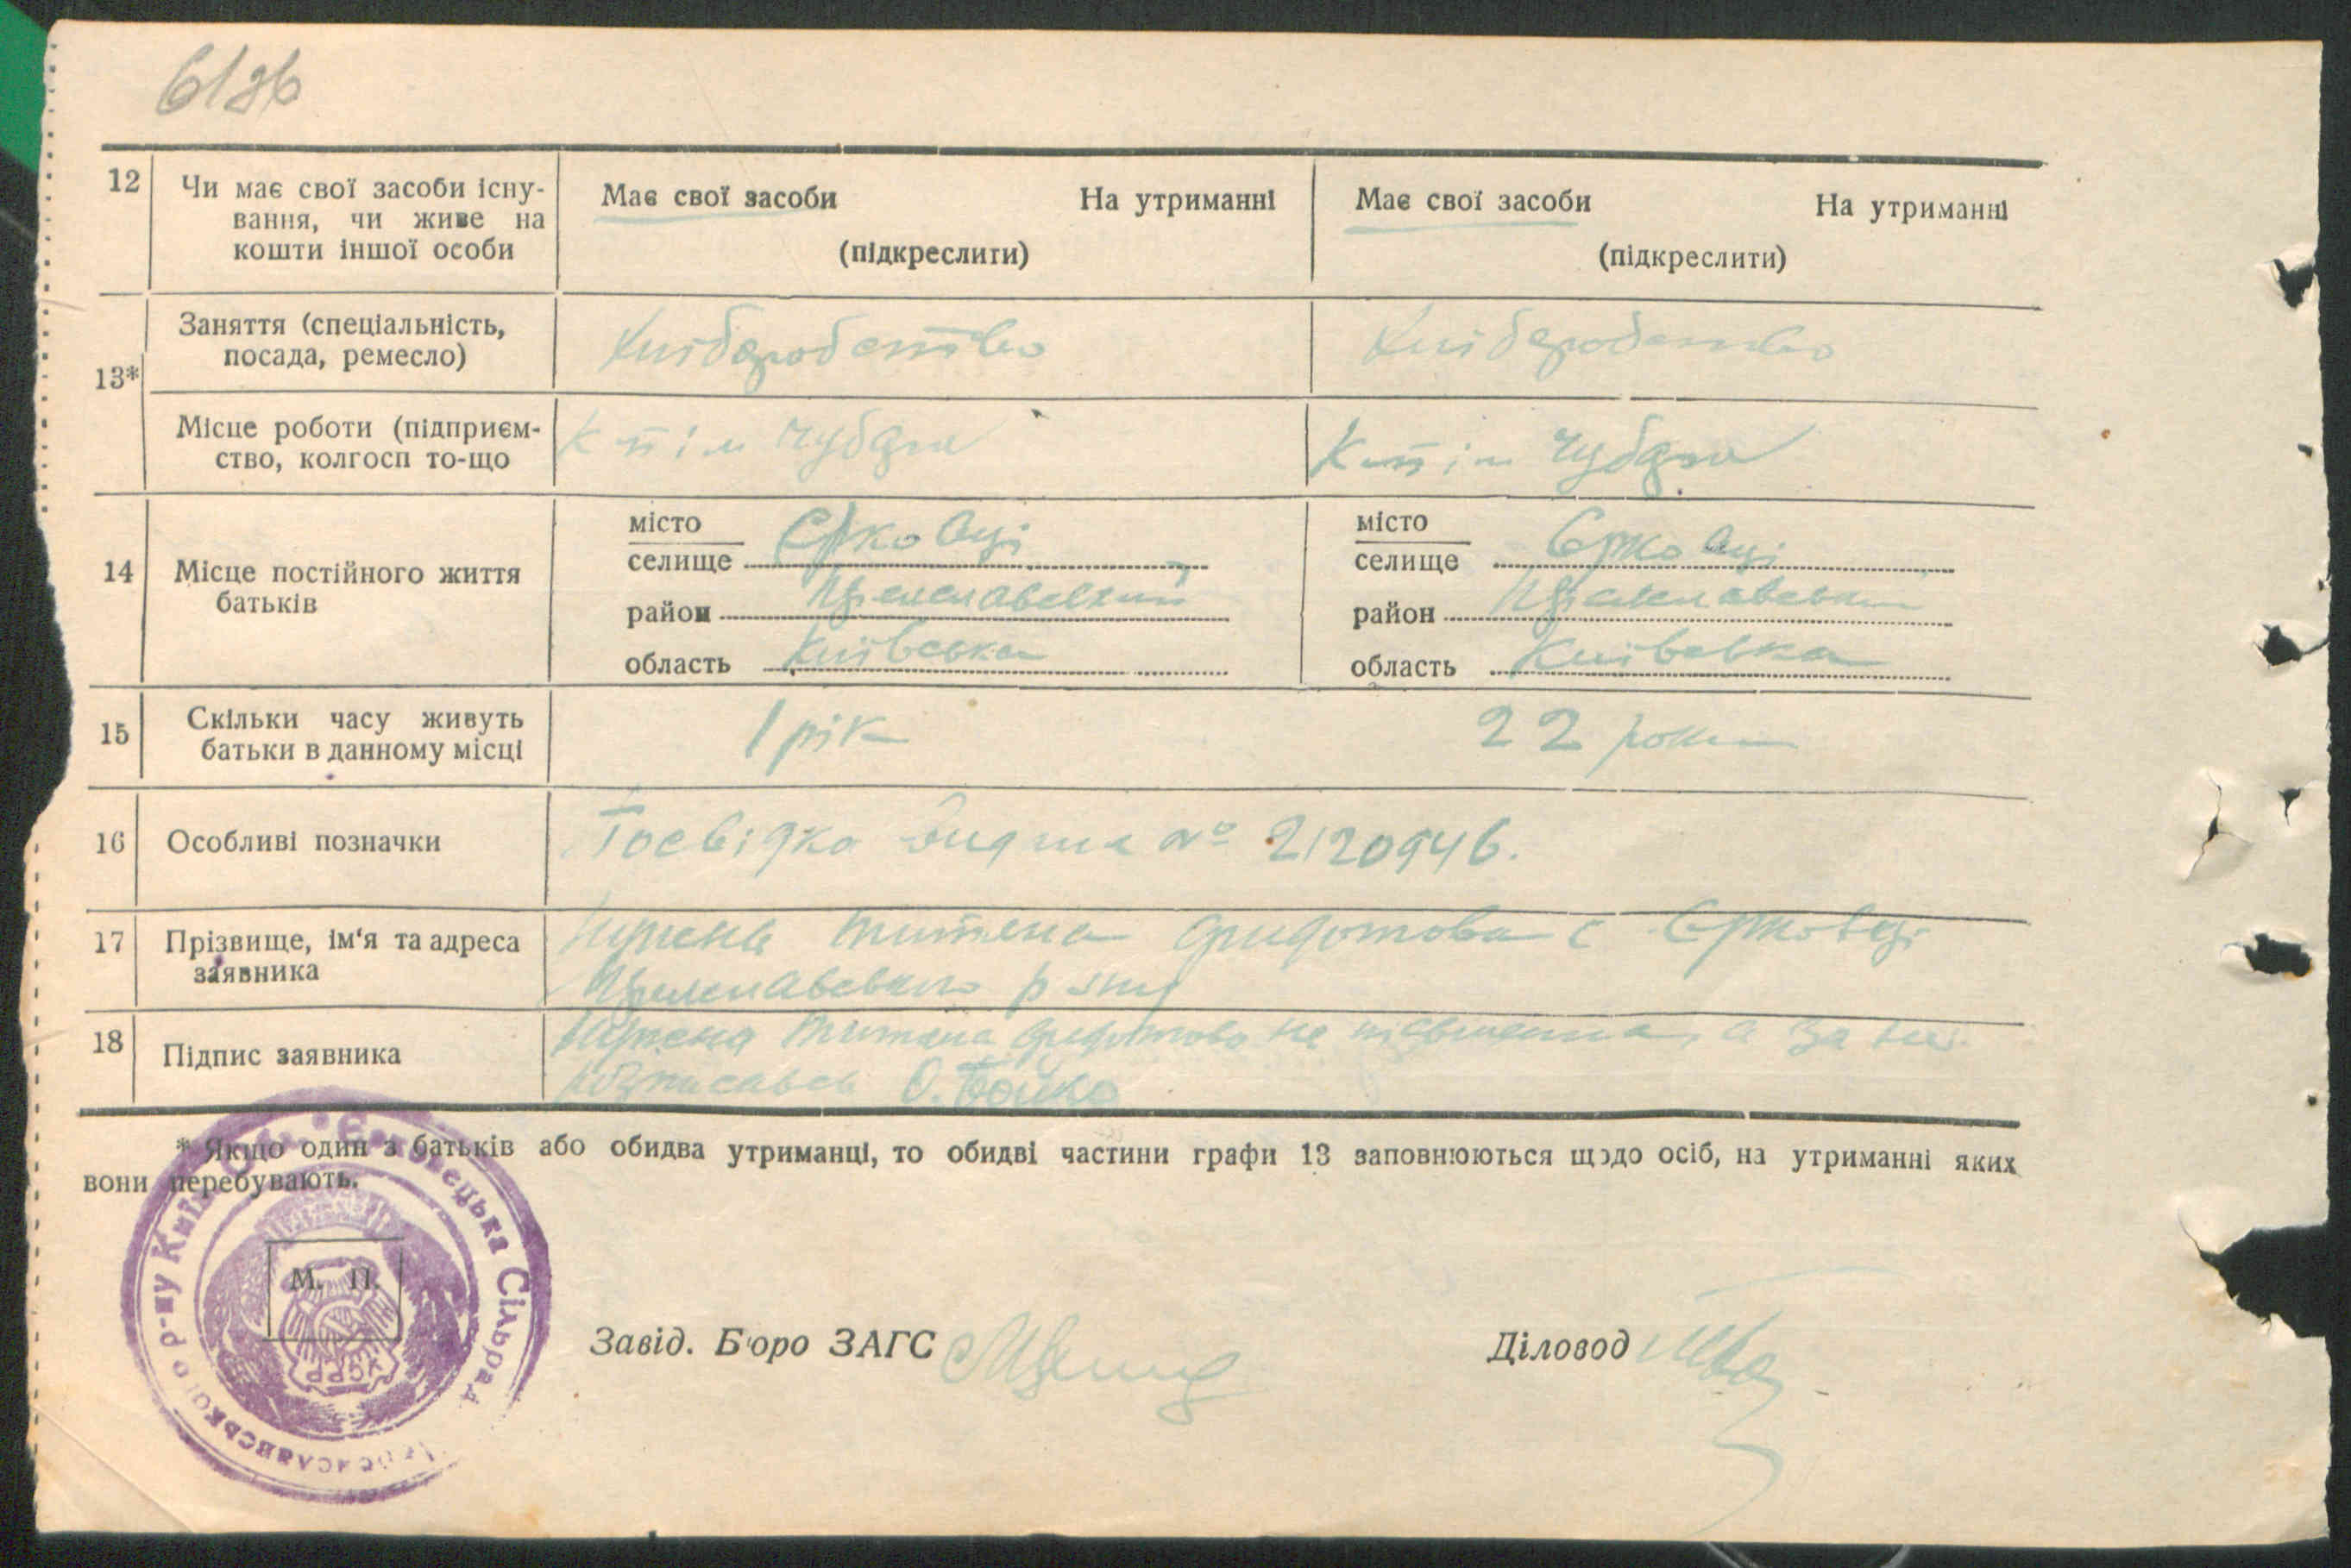 12 Чи має свої засоби існу-
вання, чи живе на
кошти іншої особи
Має свої засоби На утриманні
(підкреслити)
Має свої засоби На утриманні
(підкреслити)
13* Заняття (спеціальність,
посада, ремесло)
Хліборобство
Хліборобство
Місце роботи (підприєм-
ство, колгосп то-що
К-п ім Чубаря
К-п ім Чубаря
14 Місце постійного життя
батьків
місто
селище Єрковці
район
область Київська
місто
селище Єрковці
район
область Київська
15 Скільки часу живуть
батьки в данному місці
1 рік
22 роки
16 Особливі позначки
Посвідка видана № 2120946.
17 Прізвище, ім'я та адреса
заявника
Федотова с Єрковці
р-ну
18 Підпис заявника
Федотова не письменна, а за неї
О. Бойко
* Якщо один з батьків або обидва утриманці, то обидві частини графи 13 заповнюються щодо осіб, на утриманні яких
вони перебувають.
М. П.
Сільрада
УСРР
Завід. Бюро ЗАГС
Діловод